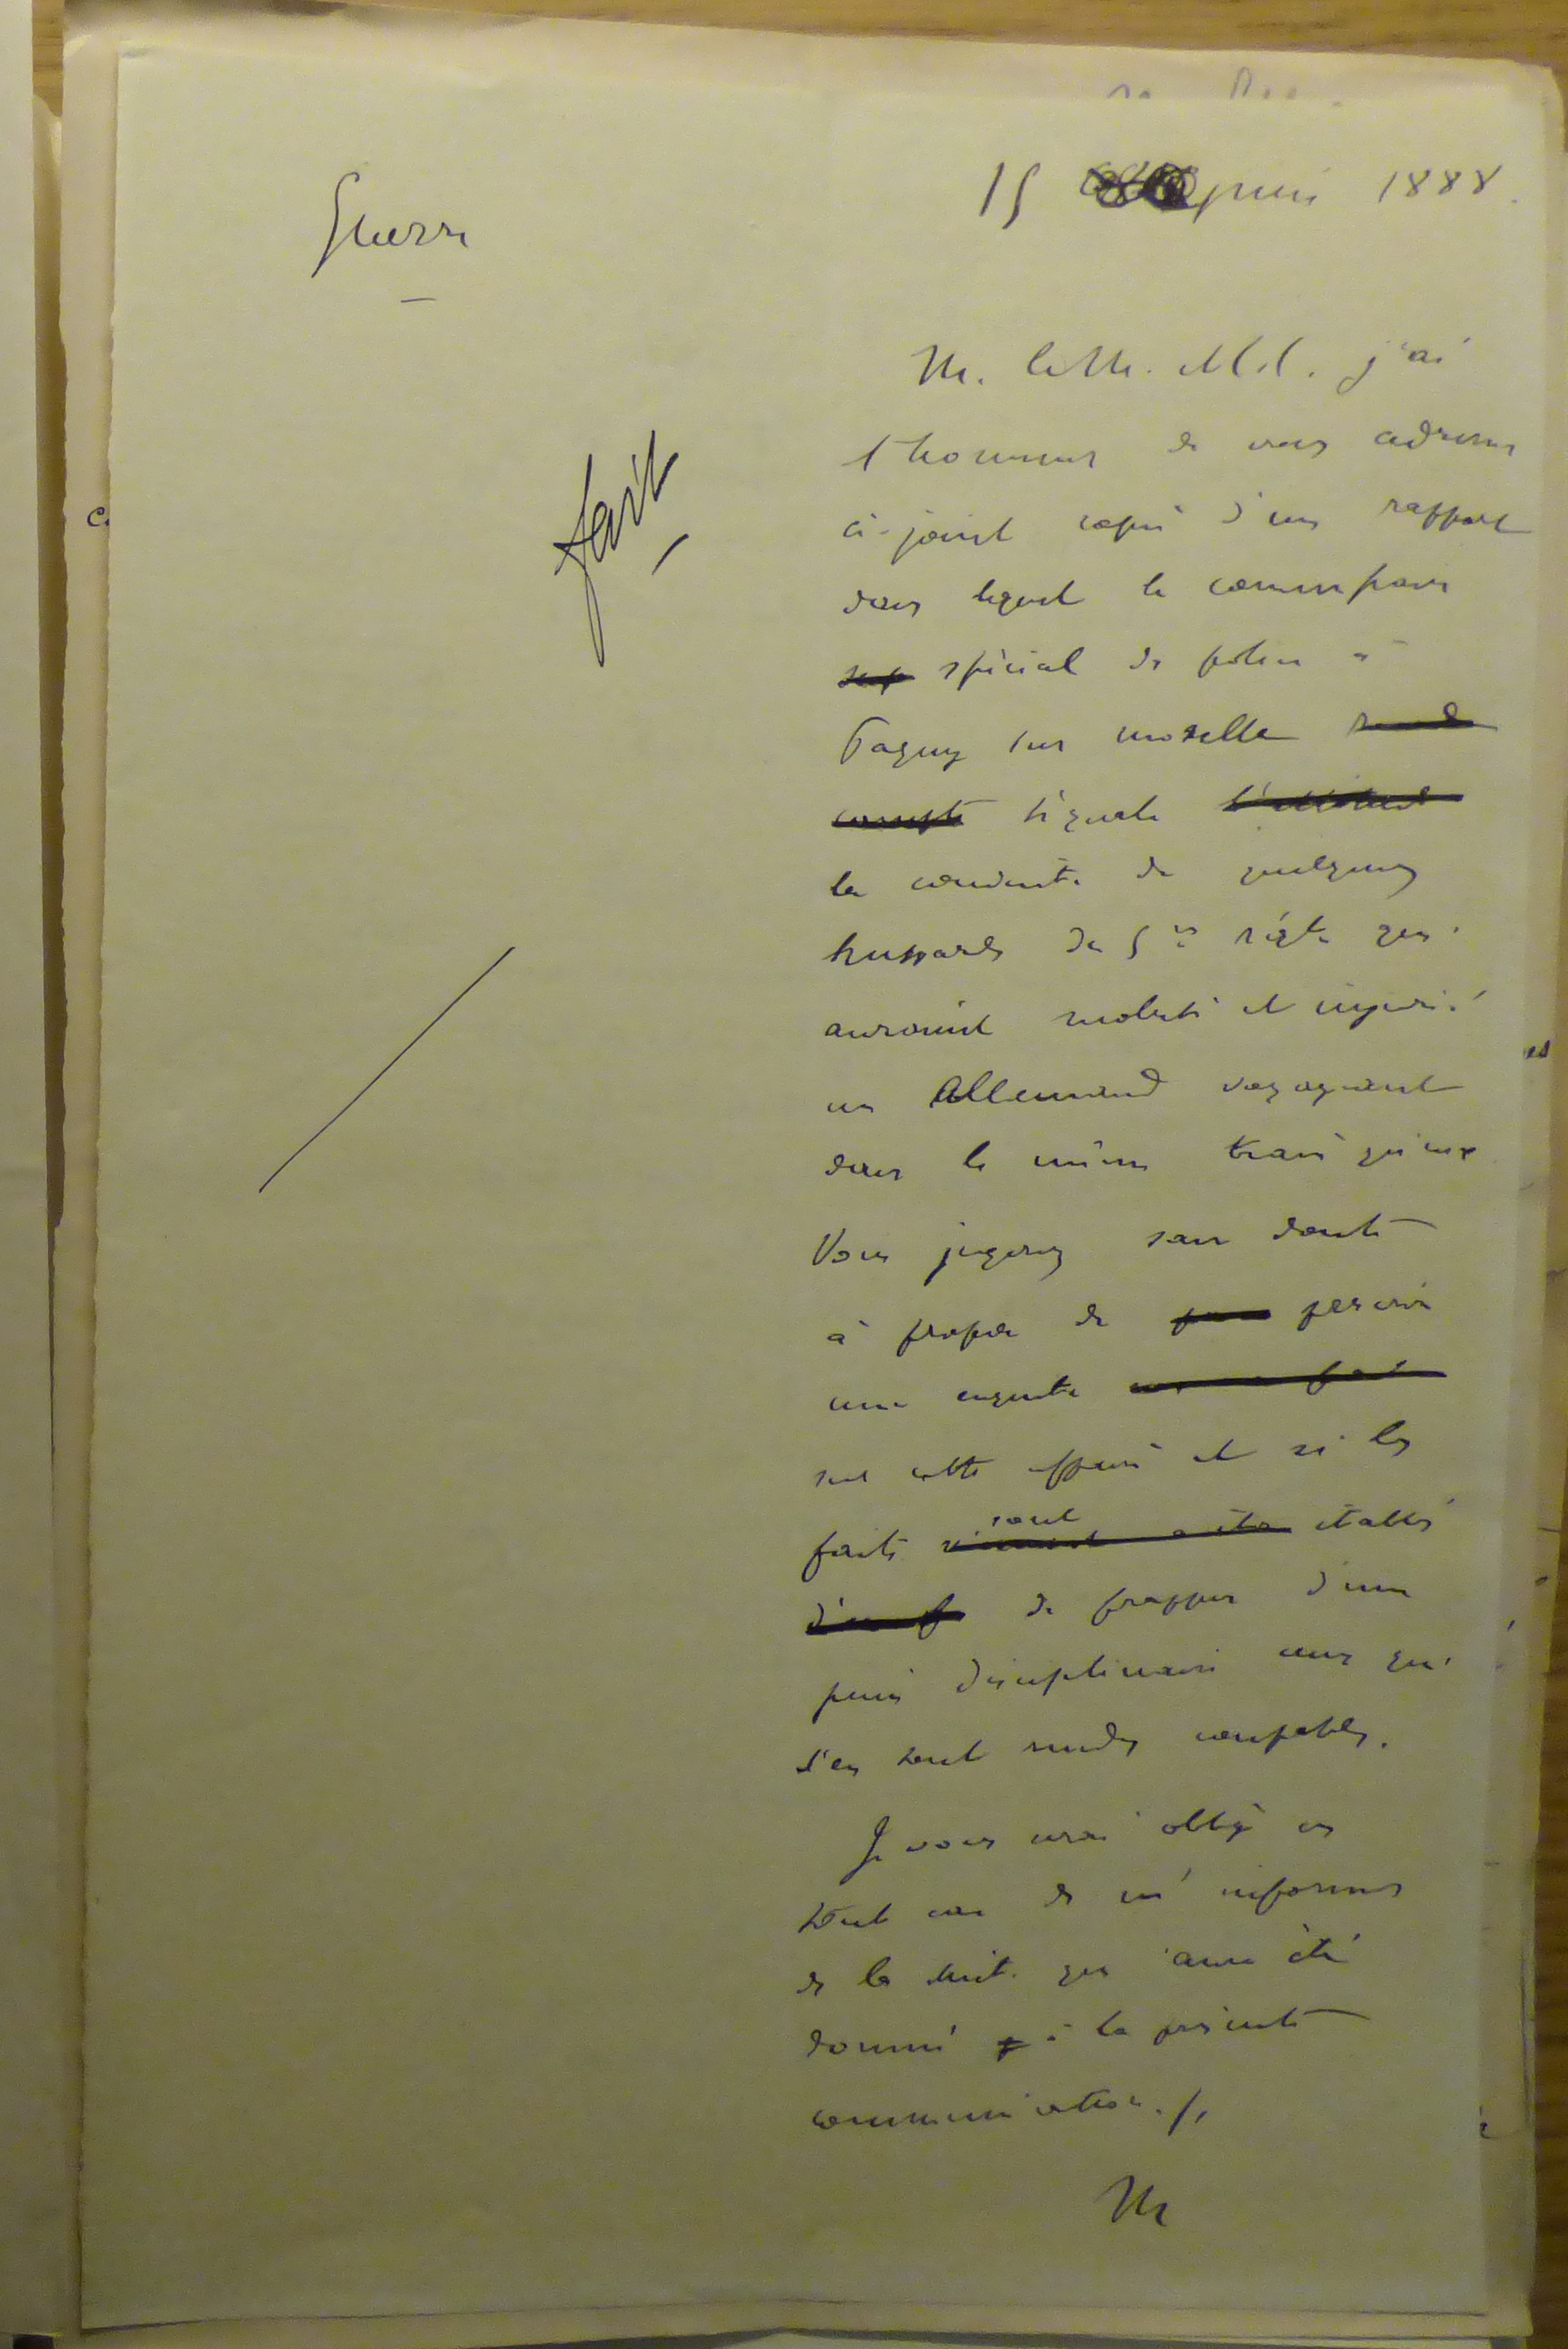 Guerre
15 juin 1888.
fait
M. le M. et ch. C. j'ai
l'honneur de vous adresser
ci-joint copie d'un rapport
dans lequel le commissaire
spécial de police à
Pagny sur moselle
compte signale
la conduite de quelques
hussards du 5e régt. qui
auraient molesté et injurié
un Allemand voyageant
dans le même train qu'eux
Vous jugerez sans doute
à propos de prescrire
une enquête
sur cette affaire et si les
faits sont établis
de frapper d'une
peine disciplinaire ceux qui
s'en sont rendus coupables.
Je vous serai obligé en
tout cas de m'informer
de la suite qui aura été
donnée à la présente
communication ./.
M